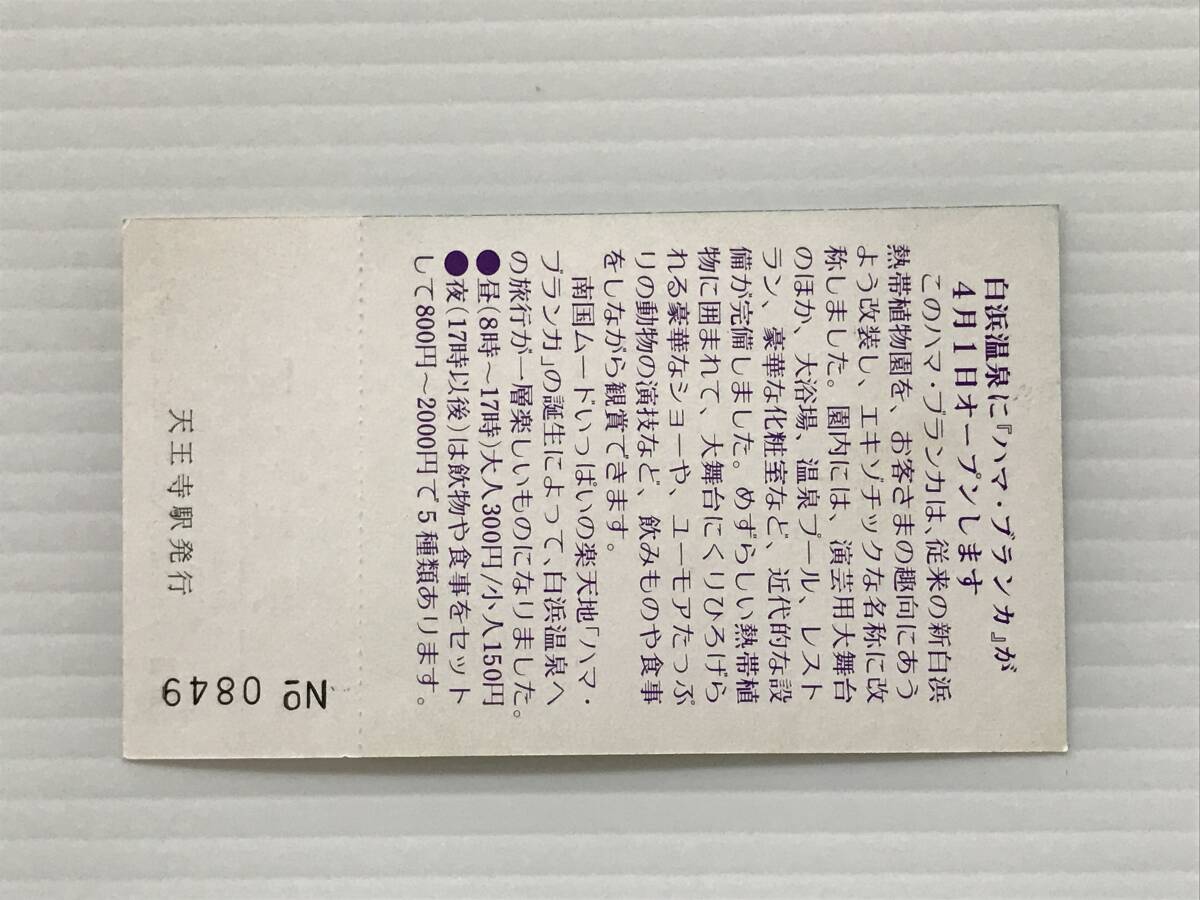 白浜温泉に『ハマ・ブランカ』が
4月1日オープンします
このハマ・ブランカは、従来の新白浜
熱帯植物園を、お客さまの趣向にあう
よう改装し、エキゾチックな名称に改
称しました。園内には、演芸用大舞台
のほか、大浴場、温泉プール、レスト
ラン、豪華な化粧室など、近代的な設
備が完備しました。めずらしい熱帯植
物に囲まれて、大舞台にくりひろげら
れる豪華なショーや、ユーモアたっぷ
りの動物の演技など、飲みものや食事
をしながら観賞できます。
南国ムードいっぱいの楽天地「ハマ・
ブランカ」の誕生によって、白浜温泉へ
の旅行が一層楽しいものになりました。
●昼(8時～17時)大人300円/小人150円
●夜(17時以後)は飲物や食事をセット
して800円～2000円で5種類あります。
天王寺駅発行
№ 0849